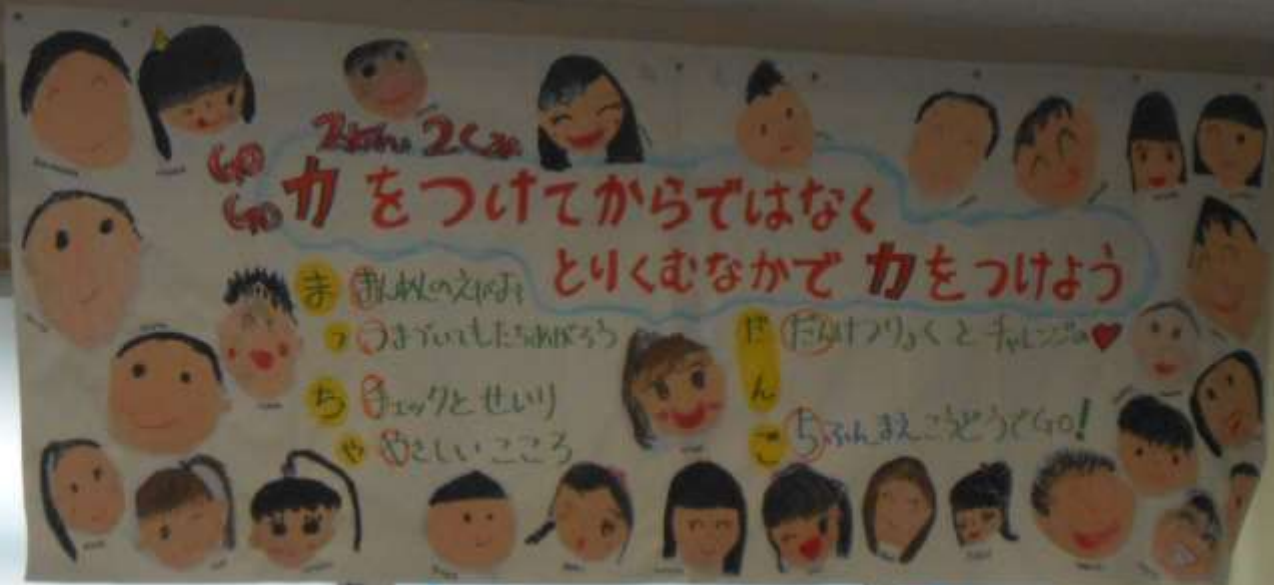 2ねん 2くみ
GO GO
力をつけてからではなく
とりくむなかで 力をつけよう
ま まんめんのえがお
っ つまづいてもたちあがろう
ち チェックとせいり
ゃ やさしいこころ
だん だんけつりょくとチャレンジの♥
ご 5ふんまえこうどうでGO!